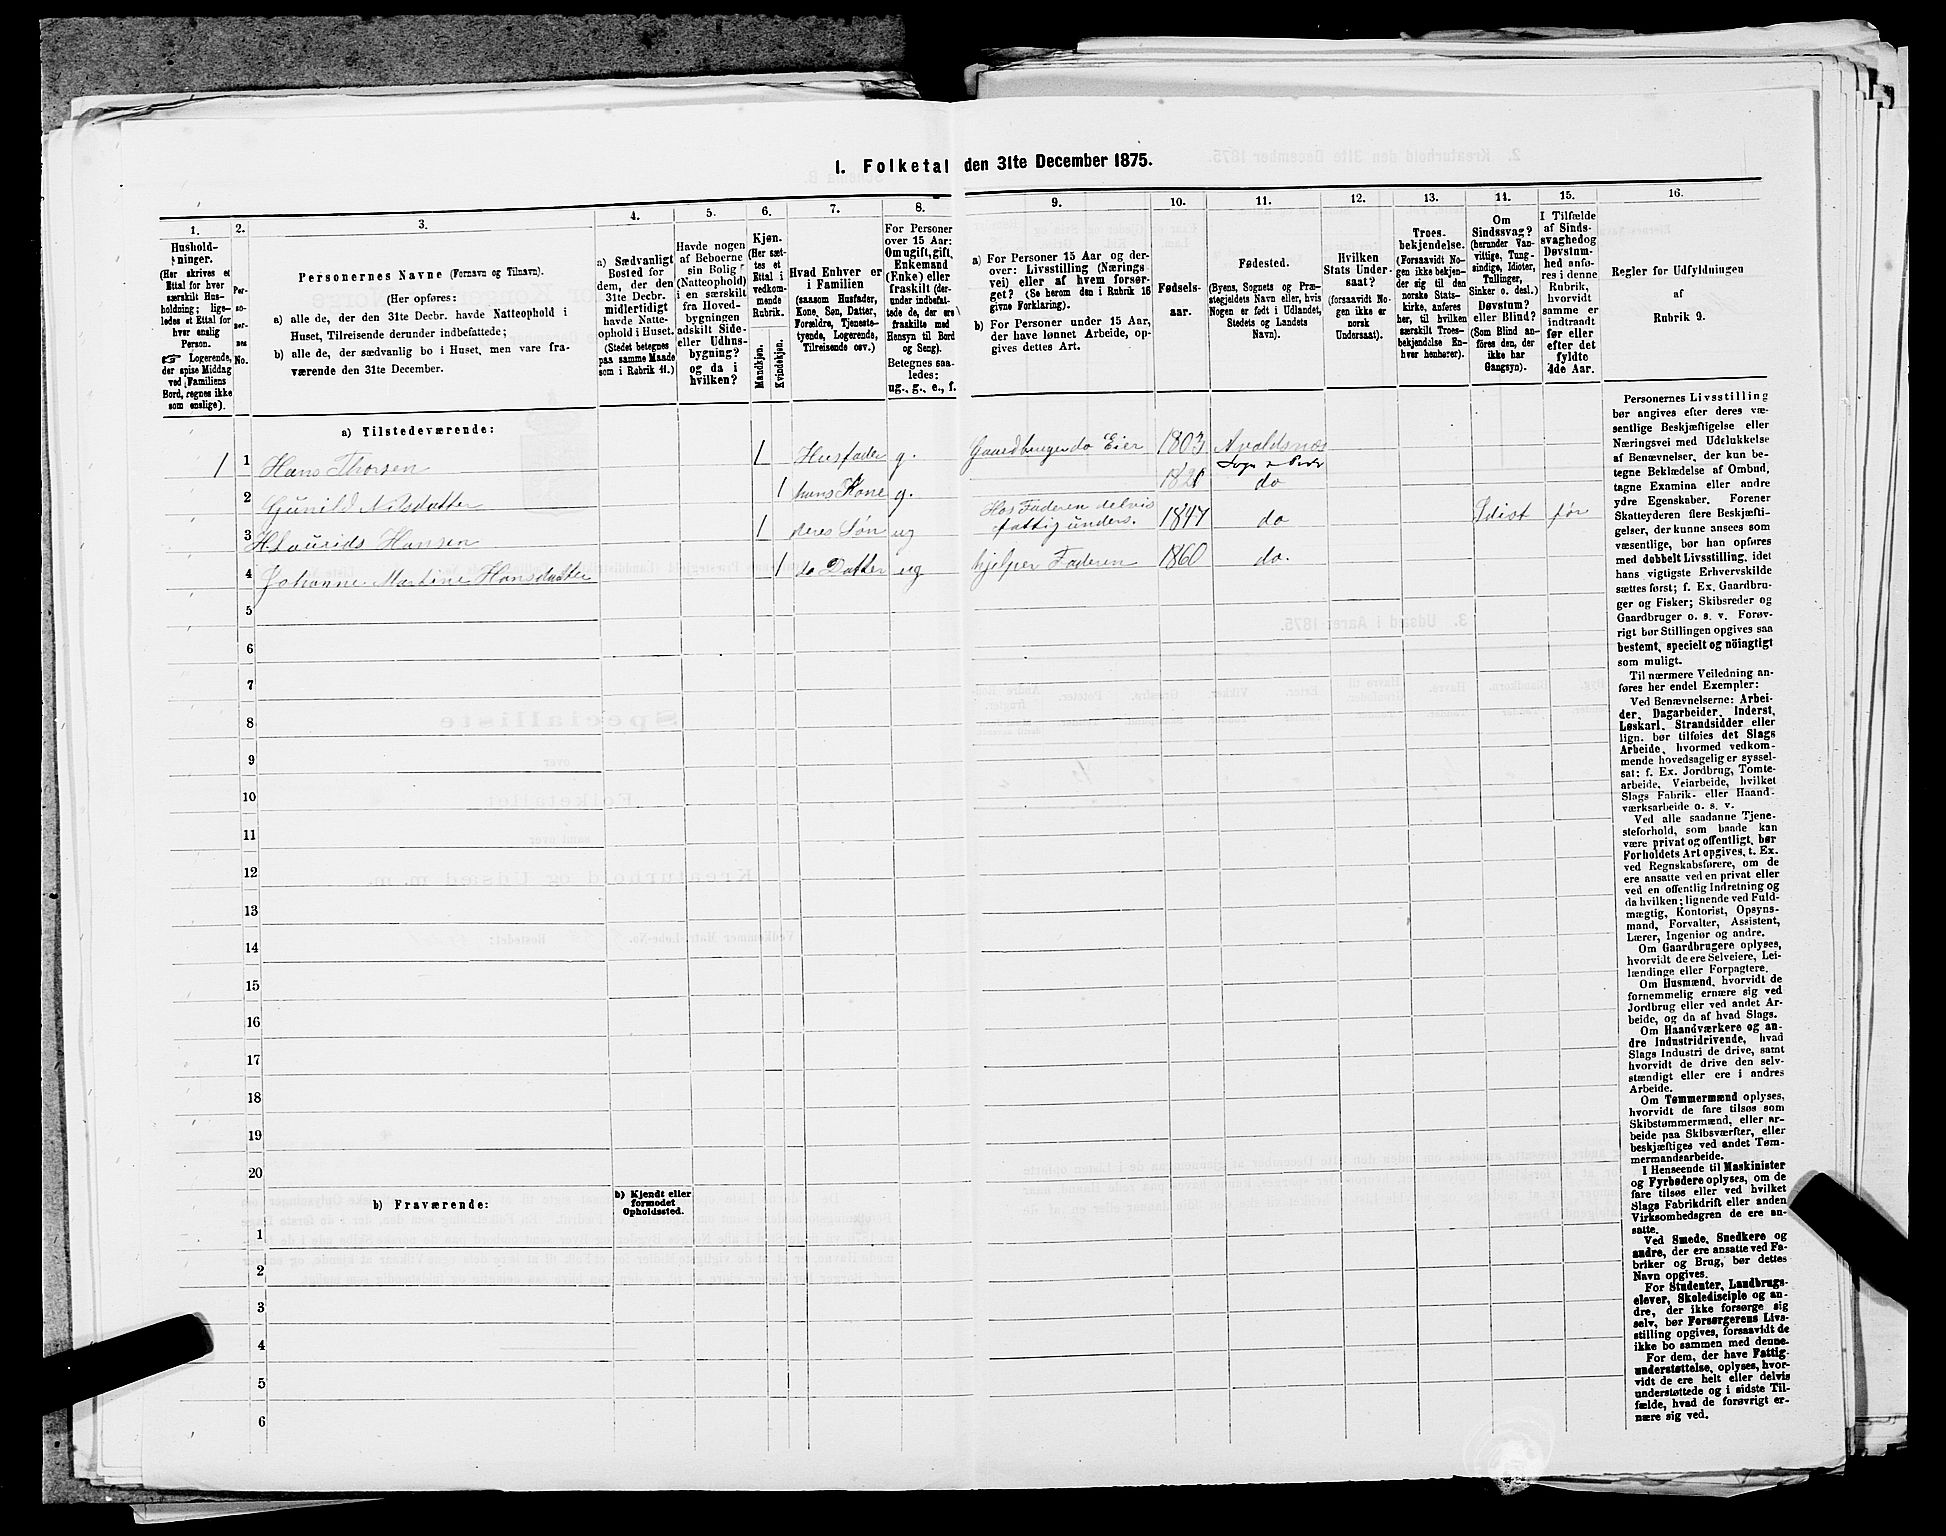 1. Folketal den 31te December 1875.
1.
2.
3.
4.
5.
6.
7.
8.
9.
10.
11.
12.
13.
14.
15.
16.
Hushold-
ninger.
(Her skrives et
Ettal for hver
særskilt Hus-
holdning; lige-
ledes et Ettal for
hver enslig
Person.
☞ Logerende,
der spise Middag
ved Familiens
Bord, regnes ikke
som enslige).
Per-
so-
ner-
nes
No.
Personernes Navne (Fornavn og Tilnavn).
(Her opføres:
a) alle de, der den 31te Decbr. havde Natteophold i
Huset, Tilreisende derunder indbefattede;
b) alle de, der sædvanlig bo i Huset, men vare fra-
værende den 31te December.
a) Sædvanligt
Bosted for
dem, der den
31te Decbr.
midlertidigt
havde Natte-
ophold i Huset.
(Stedet betegnes
paa samme Maade
som i Rubrik 11.)
Havde nogen
af Beboerne
sin Bolig
(Natteophold)
i en særskilt
fra Hoved-
bygningen
adskilt Side-
eller Udhus-
bygning?
og da i
hvilken?
Kjøn.
(Her sæt-
tes et
Ettal i
vedkom-
mende
Rubrik.
Mandkjøn.
Kvindekjøn.
Hvad Enhver er
i Familien
(saasom Husfader,
Kone, Søn, Datter,
Forældre, Tjeneste-
tyende, Logerende,
Tilreisende osv.)
For Personer
over 15 Aar:
Om ugift, gift,
Enkemand
(Enke) eller
fraskilt (der-
under indbefat-
tede de, der ere
fraskilte med
Hensyn til Bord
og Seng).
Betegnes saa-
ledes:
ug., g., e., f.
a) For Personer 15 Aar og der-
over: Livsstilling (Nærings
vei) eller af hvem forsør-
get? (Se herom den i Rubrik 16
givne Forklaring).
b) For Personer under 15 Aar,
der have lønnet Arbeide, op-
gives dettes Art.
Fødsels-
aar.
Fødested.
(Byens, Sognets og Præ-
stegjeldets Navn eller, hvis
Nogen er født i Udlandet,
Stedets og Landets
Navn).
Hvilken
Stats Under-
saat?
(forsaavidt No-
gen ikke er
norsk
Undersaat).
Troes-
bekjendelse.
(Forsaavidt No-
gen ikke bekjen-
der sig til den
norske Stats-
kirke, anføres
her, til hvilken
særskilt Troes-
bekjendelse En-
hver henhører).
Om
Sindssvag?
(herunder Van-
vittige, Tung-
sindige, Idioter,
Tullinger,
Sinker o. desl.)
Døvstum?
eller Blind?
(Som Blind an-
føres den, der
ikke har
Gangsyn).
I Tilfælde
af Sinds-
svaghedog
Døvstum-
hed anfø-
res i denne
Rubrik,
hvorvidt
samme er
indtraadt
før eller
efter det
fyldte
4de Aar.
Regler for Udfyldningen
af
Rubrik 9.
a) Tilstedeværende:
1 1 Hans Thorsen 1 Husfader g. Gaardbrugende Eier 1803 Avaldsnæs
Sogn
2 Gunild Nilsdatter 1 hans Kone g. 1821 do
3 Laurids Hansen 1 deres Søn ug Hos Faderen delvis
fattigunders. 1847 do Idiot før
4 Johanne Martine Hansdatter 1 do Datter ug hjelper Faderen 1860 do.
5
6
7
8
9
10
11
12
13
14
15
16
17
18
19
20
b) Fraværende:
b) Kjendt eller
formodet
Opholdssted.
1
2
3
4
5
6
Personernes Livsstilling
bør angives efter deres væ-
sentlige Beskjæftigelse eller
Næringsvei med Udelukkelse
af Benævnelser, der kun be-
tegne Beklædelse af Ombud,
tagne Examina eller andre
ydre Egenskaber. Forener
Skatteyderen flere Beskjæfti-
gelser, der kunne ansees som
væsentlige, bør han opføres
med dobbelt Livsstilling, idet
hans vigtigste Erhvervskilde
sættes først; f. Ex. Gaardbru-
ger og Fisker; Skibsreder og
Gaardbruger o. s. v. Forøv-
rigt bør Stillingen opgives saa
bestemt, specielt og nöiagtigt
som muligt.
Til nærmere Veiledning an-
føres her endel Exempler:
Ved Benævnelserne: Arbei-
der, Dagarbeider, Inderst,
Løskarl, Strandsidder eller
lign. bør tilføies det Slags
Arbeide, hvormed vedkom-
mende hovedsagelig er syssel-
sat: f. Ex. Jordbrug, Tomte-
arbeide, Veiarbeide, hvilket
Slags Fabrik- eller Haand-
værksarbeide o. s. v.
Ved alle saadanne Tjene-
steforhold, som baade kan
være privat og offentligt, bør
Forholdets Art opgives, t. Ex.
ved Regnskabsførere, om de
ere ansatte ved en privat eller
ved en offentlig Indretning og
da hvilken; lignende ved Fuld-
mægtig, Kontorist, Opsyns-
mand, Forvalter, Assistent,
Lærer, Ingeniør og andre.
Om Gaardbrugere oplyses,
hvorvidt de ere Selveiere, Lei-
lændinge eller Forpagtere.
Om Husmænd, hvorvidt de
fornemmelig ernære sig ved
Jordbrug eller ved andet Ar-
beide, og da af hvad Slags.
Om Haandværkere og an-
dre Industridrivende, hvad
Slags Industri de drive, samt
hvorvidt de drive den selv-
stændigt eller ere i andres
Arbeide.
Om Tømmermænd oplyses,
hvorvidt de fare tilsøs som
Skibstømmermænd, eller ar-
beide paa Skibsværfter, eller
beskjæftiges ved andet Tøm-
mermandsarbeide.
I Henseende til Maskinister
og Fyrbødere oplyses, om de
fare tilsøs eller ved hvilket
Slags Fabrikdrift eller anden
Virksomhedsgren de ere an-
satte.
Ved Smede, Snedkere og
andre, der ere ansatte ved Fa-
briker og Brug, bør dettes
Navn opgives.
For Studenter, Landbrugs-
elever, Skoledisciple og an-
dre, der ikke forsørge sig
selv, bør Forsørgerens Livs-
stilling opgives, forsaavidt de
ikke bo sammen med denne.
For dem, der have Fattig-
understøttelse, oplyses, hvor-
vidt de ere helt eller delvis
understøttede og i sidste Til-
fælde, hvad de forøvrigt er-
nære sig ved.